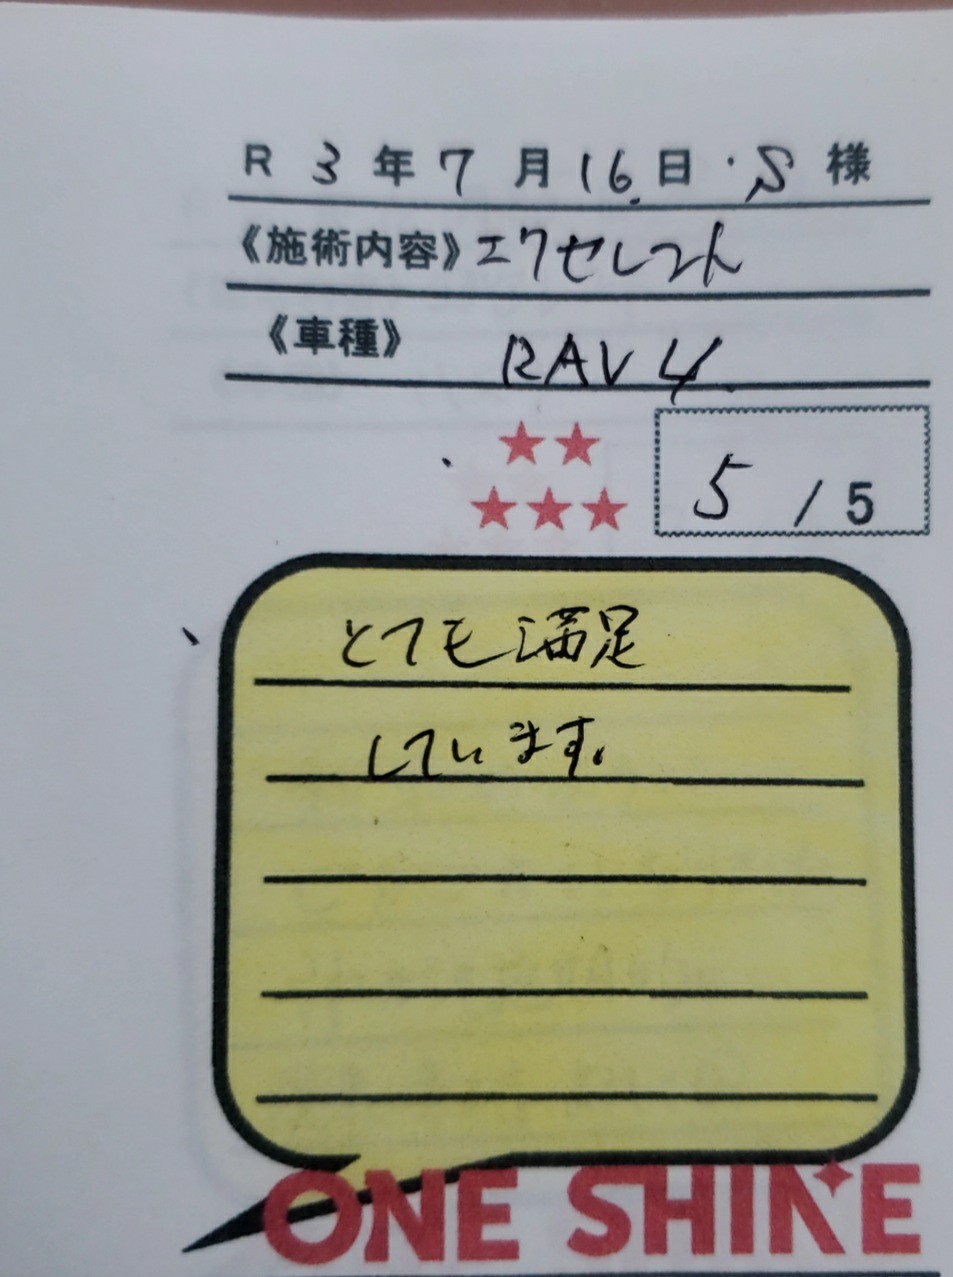 R 3年7月16日・S様
《施術内容》エクセレント
《車種》 RAV4
5 / 5
とても満足
しています。
ONE SHINE